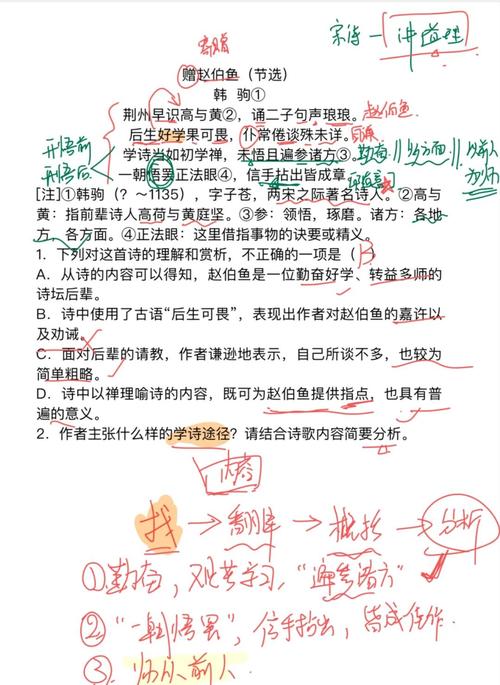 宋诗一讲道理
赠赵伯鱼（节选）
韩 驹①
荆州早识高与黄②，诵二子句声琅琅。
赵伯鱼
后生好学果可畏，仆常倦谈殊未详。
学诗当如初学禅，未悟且遍参诸方③。
一朝悟罢正法眼④，信手拈出皆成章。
[注]①韩驹（？～1135），字子苍，两宋之际著名诗人。②高与
黄：指前辈诗人高荷与黄庭坚。③参：领悟，琢磨。诸方：各地
方、各方面。④正法眼：这里借指事物的诀要或精义。
1．下列对这首诗的理解和赏析，不正确的一项是（B）
A．从诗的内容可以得知，赵伯鱼是一位勤奋好学、转益多师的
诗坛后辈。
B．诗中使用了古语“后生可畏”，表现出作者对赵伯鱼的嘉许以
及劝诫。
C．面对后辈的请教，作者谦逊地表示，自己所谈不多，也较为
简单粗略。
D．诗中以禅理喻诗的内容，既可为赵伯鱼提供指点，也具有普
遍的意义。
2．作者主张什么样的学诗途径？请结合诗歌内容简要分析。
内容
找→翻译→概括→分析
①勤奋，观其学习，“遍参诸方”
②“一朝悟罢”，信手拈出，皆成佳作．
③．师从前人